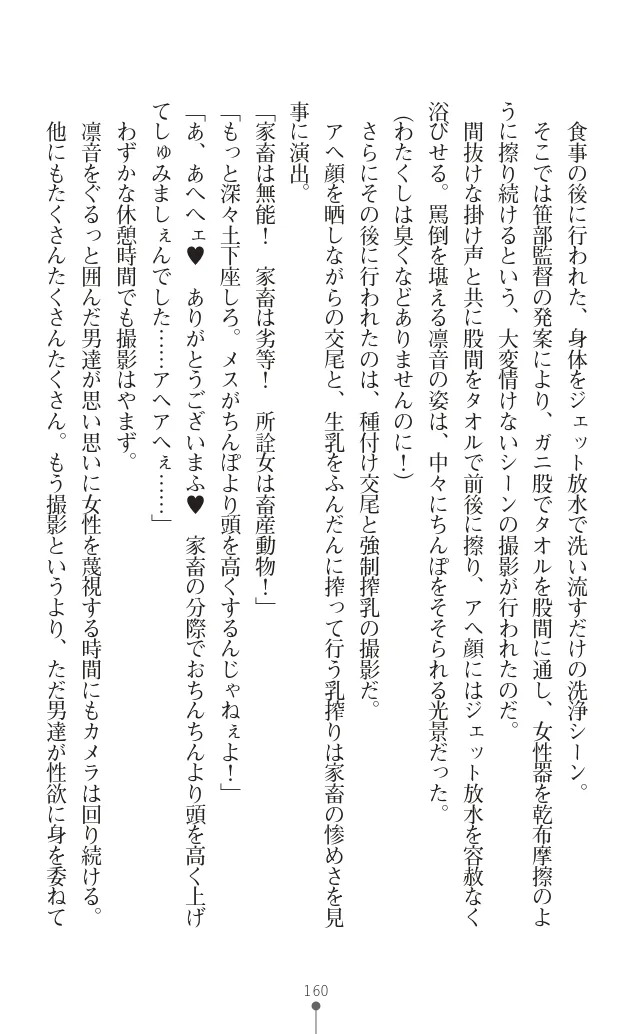 食事の後に行われた、身体をジェット放水で洗い流すだけの洗浄シーン。
そこでは笹部監督の発案により、ガニ股でタオルを股間に通し、女性器を乾布摩擦のよ
うに擦り続けるという、大変情けないシーンの撮影が行われたのだ。
間抜けな掛け声と共に股間をタオルで前後に擦り、アヘ顔にはジェット放水を容赦なく
浴びせる。罵倒を堪える凛音の姿は、中々にちんぽをそそられる光景だった。
(わたくしは臭くなどありませんのに!)
さらにその後に行われたのは、種付け交尾と強制搾乳の撮影だ。
アヘ顔を晒しながらの交尾と、生乳をふんだんに搾って行う乳搾りは家畜の惨めさを見
事に演出。
「家畜は無能! 家畜は劣等! 所詮女は畜産動物!」
「もっと深々土下座しろ。メスがちんぽより頭を高くするんじゃねぇよ!」
「あ、あへへェ♥ ありがとうございまふ♥ 家畜の分際でおちんちんより頭を高く上げ
てしゅみましぇんでした……アヘアヘぇ……」
わずかな休憩時間でも撮影はやまず。
凛音をぐるっと囲んだ男達が思い思いに女性を蔑視する時間にもカメラは回り続ける。
他にもたくさんたくさんたくさん。もう撮影というより、ただ男達が性欲に身を委ねて
160